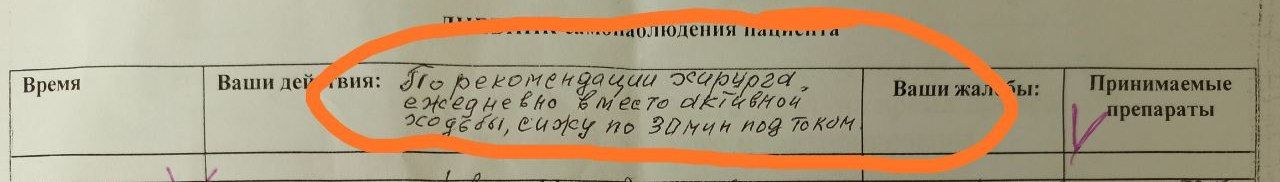 ДНЕВНИК самонаблюдения пациента
Время Ваши действия: По рекомендации хирурга, Ваши жалобы: Принимаемые препараты
ежедневно вместо активной
ходьбы, сижу по 30 мин под током